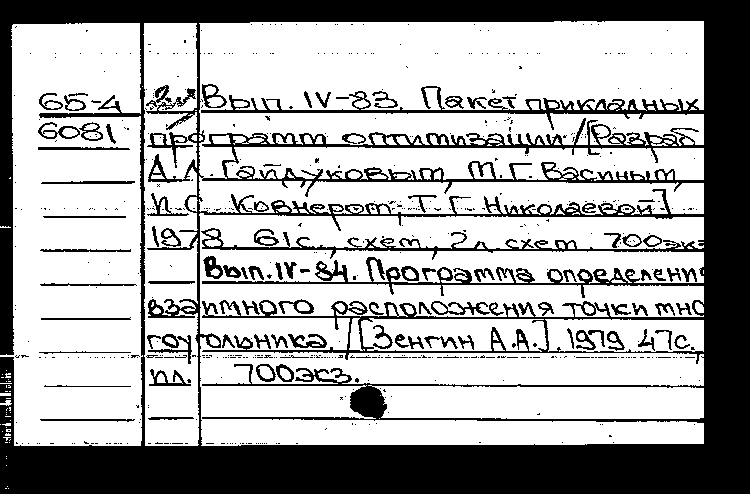 65-4 Вып. IV-83. Пакет прикладных
6081 программ оптимизации /[Разраб
А.Л. Гайдуковым, М.Г. Васиным,
П.С. Ковнером, Т.Г. Николаевой]
1978. 61с., схем., 2л. схем. 700экз
Вып. IV-84. Программа определения
взаимного расположения точки мно
гоугольника. /[Зенгин А.А.]. 1979. 47с.,
пл. 700экз.